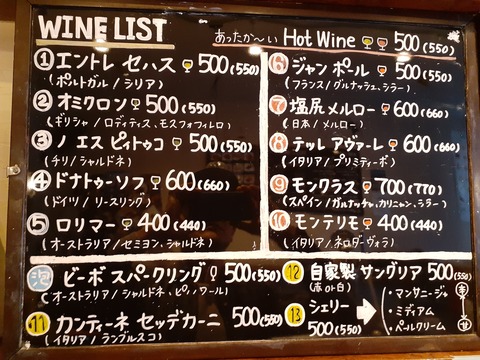 WINE LIST
あったか〜い Hot Wine 500(550)
① エントレ セハス 500(550)
(ポルトガル/シリア)
② オミクロン 500(550)
(ギリシャ/ロディティス、モスフォフィレロ)
③ ノ エス ピィトゥコ 500(550)
(チリ/シャルドネ)
④ ドナトゥーソフ 600(660)
(ドイツ/リースリング)
⑤ ロリマー 400(440)
(オーストラリア/セミヨン、シャルドネ)
⑥ ジャン ポール 500(550)
(フランス/グルナッシュ、シラー)
⑦ 塩尻メルロー 600(660)
(日本/メルロー)
⑧ テッレ アヴァーレ 600(660)
(イタリア/プリミティーボ)
⑨ モンクラス 700(770)
(スペイン/ガルナッチャ、カリニャン、シラー)
⑩ モンテリモ 400(440)
(イタリア/ネロダーヴォラ)
泡 ビーボ スパークリング 500(550)
(オーストラリア/シャルドネ、ピノノワール)
⑪ カンティーネ セッデカーニ 500(550)
(イタリア/ランブルスコ)
⑫ 自家製 サングリア 500(550)
(赤 or 白)
⑬ シェリー 500(550)
・マンサニージャ
・ミディアム
・ペールクリーム
辛
甘